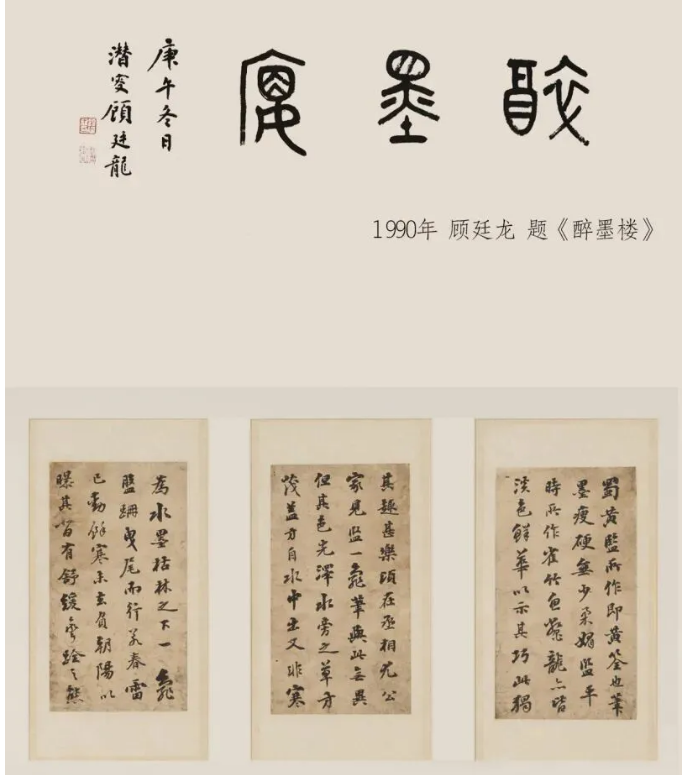 醉墨廔
庚午冬日
潛叟顧廷龍
1990年 顾廷龙 题《醉墨楼》
蜀黄監所作即黄筌也筆
墨瘦硬無少柔媚監平
時所作雀竹龍亦皆
淡色鮮華以示其巧此獨
其趣甚樂頃在丞相尤公
家見監一龜筆與此無異
但其色光澤水旁之草方
茂蓋方自水中出又非寒
為水墨枯林之下一龜
蹣跚曳尾而行若春雷
已動餘寒未去負朝陽以
曝其背有舒緩之態